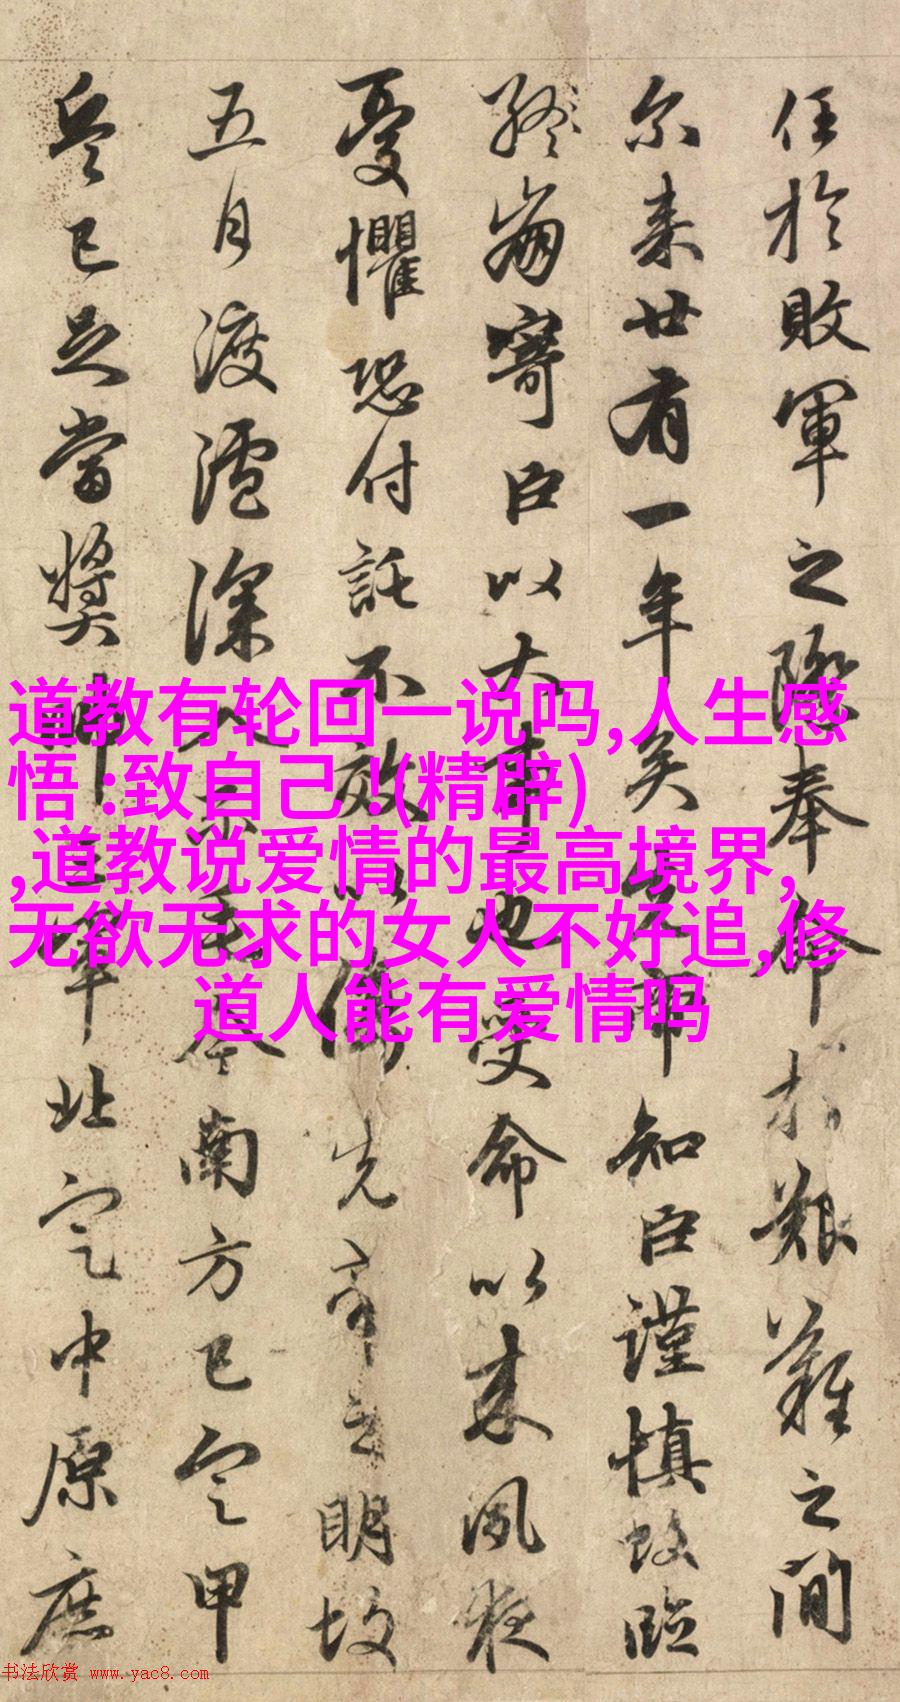 任於敗軍之際奉命於艱難之間
尔来廿有一年矣先帝知臣謹慎故臨
終崩寄臣以大事也受命以来夙夜
憂懼恐付託不效以傷先帝之明故
五月渡瀘深入不毛今南方已定甲
兵已足當獎帥三軍北定中原庶
道教有轮回一说吗,人生感
悟 :致自己 !(精辟)
,道教说爱情的最高境界,
无欲无求的女人不好追,修
道人能有爱情吗
书法欣赏 www.yac8.com